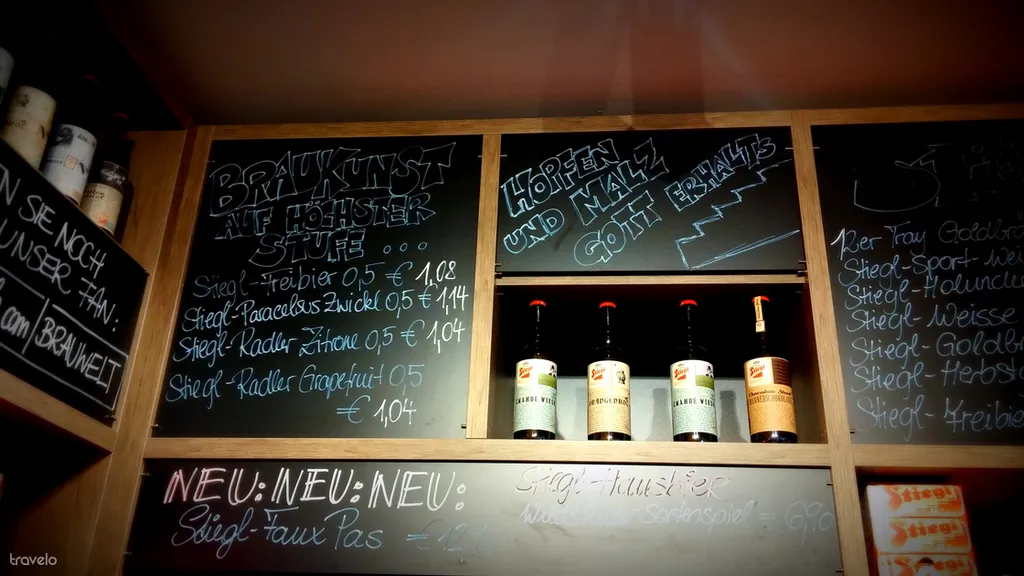 N SIE NOCH
UNSER FAN:
BRAUWELT
BRAUKUNST
AUF HÖCHSTER
STUFE ...
Stiegl-Freibier 0,5 € 1,08
Stiegl-Paracelsus Zwickl 0,5 € 1,14
Stiegl-Radler Zitrone 0,5 € 1,04
Stiegl-Radler Grapefruit 0,5
€ 1,04
HOPFEN
UND MALZ
GOTT ERHALTS
12er Tray Goldbrä
Stiegl-Sport-Wei
Stiegl-Holunde
Stiegl-Weisse
Stiegl-Goldb
Stiegl-Herbst
Stiegl-Freibie
Stiegl
Stiegl
Stiegl
Stiegl
NEU: NEU: NEU:
Stiegl-Faux Pas
Stiegl-Hausbier
Sortenspiel =
Stiegl
Stiegl
Stiegl
travelo